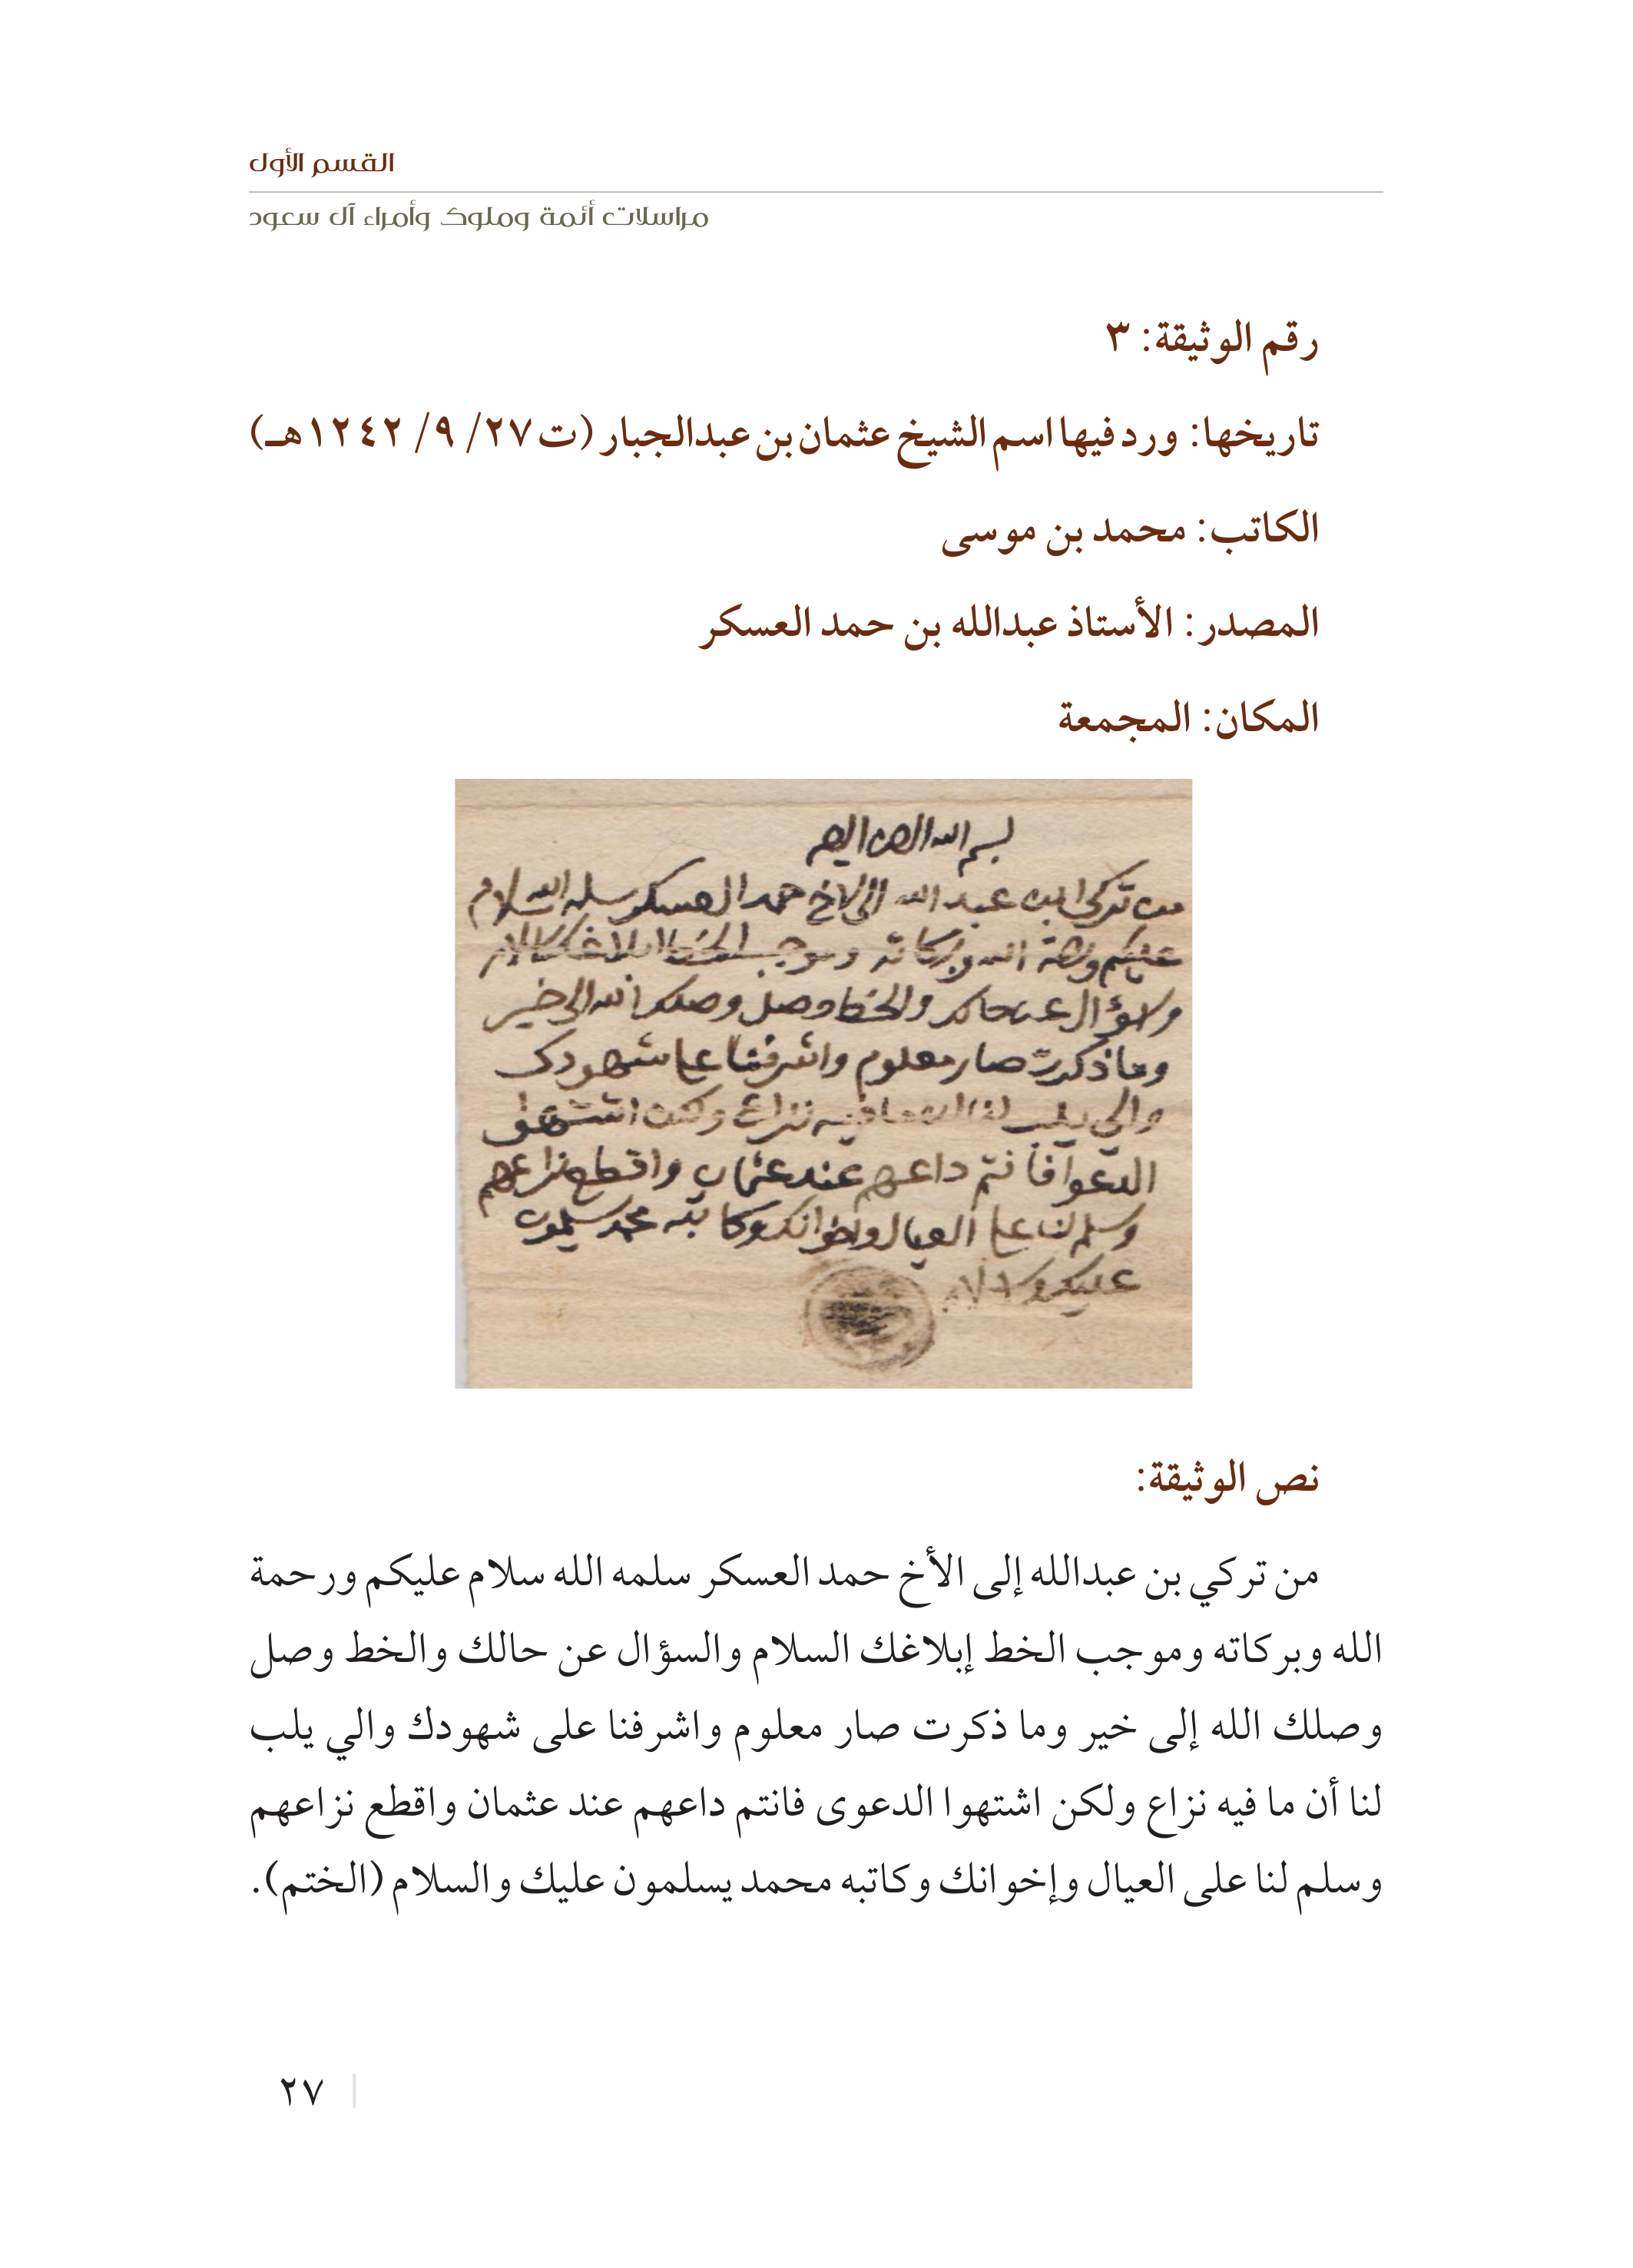 القسم الأول
مراسلات أئمة وملوك وأمراء آل سعود
رقم الوثيقة: ٣
تاريخها: ورد فيها اسم الشيخ عثمان بن عبدالجبار (ت ٢٧/ ٩/ ١٢٤٢هـ)
الكاتب: محمد بن موسى
المصدر: الأستاذ عبدالله بن حمد العسكر
المكان: المجمعة
بسم الله الرحمن الرحيم
من تركي ابن عبد الله الى الاخ حمد العسكر سلمه الله سلام
عليكم ورحمة الله وبركاته وموجب الخط ابلاغك السلام
والسؤال عن حالك والخط وصل وصلك الله الى خير
وما ذكرت صار معلوم واشرفنا على شهودك
والي يلب لنا ان ما فيه نزاع ولكن اشتهوا
الدعوا فانتم داعهم عند عثمان واقطع نزاعهم
وسلم لنا على العيال واخوانك وكاتبه محمد يسلمون
عليك والسلام
نص الوثيقة:
من تركي بن عبدالله إلى الأخ حمد العسكر سلمه الله سلام عليكم ورحمة
الله وبركاته وموجب الخط إبلاغك السلام والسؤال عن حالك والخط وصل
وصلك الله إلى خير وما ذكرت صار معلوم واشرفنا على شهودك والي يلب
لنا أن ما فيه نزاع ولكن اشتهوا الدعوى فانتم داعهم عند عثمان واقطع نزاعهم
وسلم لنا على العيال وإخوانك وكاتبه محمد يسلمون عليك والسلام (الختم).
٢٧